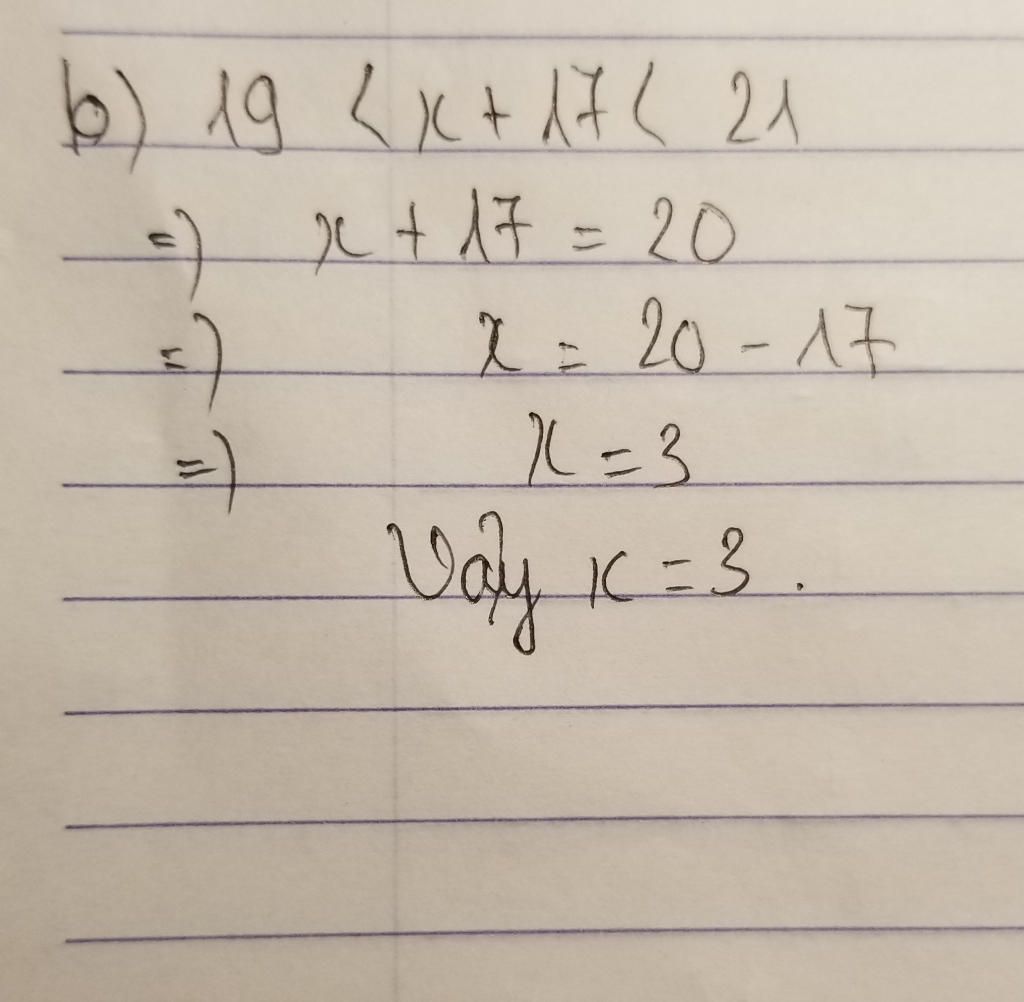 b) 19 < x + 17 < 21
=> x + 17 = 20
=> x = 20 - 17
=> x = 3
Vậy x = 3.